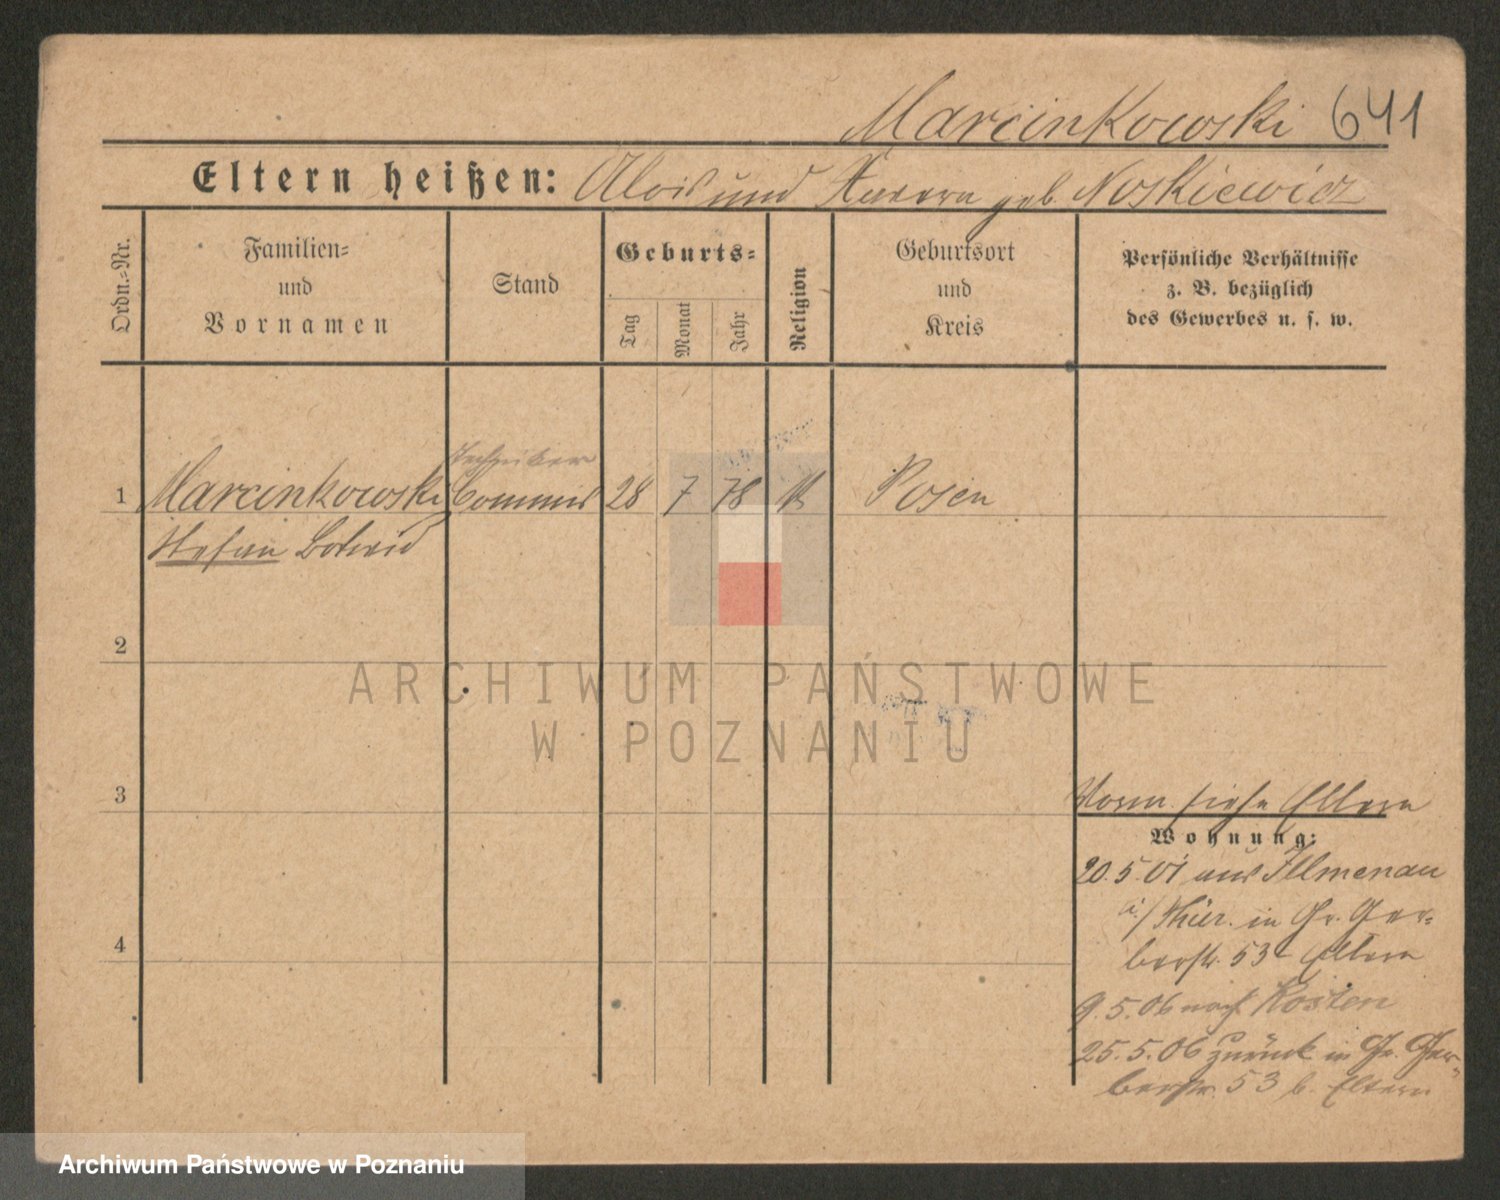 Marcinkowski 641
Eltern heißen: Alois und geb. Noskiewicz
Ordn.-Nr.
Familien-
und
Vornamen
Stand
Geburts-
Tag
Monat
Jahr
Religion
Geburtsort
und
Kreis
Persönliche Verhältnisse
z. B. bezüglich
des Gewerbes u. s. w.
Techniker
1 Marcinkowski Commis 28 7 78 K Posen
Stefan
2
3
4
Vorm. siehe Eltern
Wohnung:
20.5.01 aus Illmenau
i/Thür. in Gr. Ger-
berstr. 53 Eltern
9.5.06 nach Kosten
25.5.06 zurück in Gr. Ger-
berstr. 53 b. Eltern
ARCHIWUM PAŃSTWOWE
W POZNANIU
Archiwum Państwowe w Poznaniu